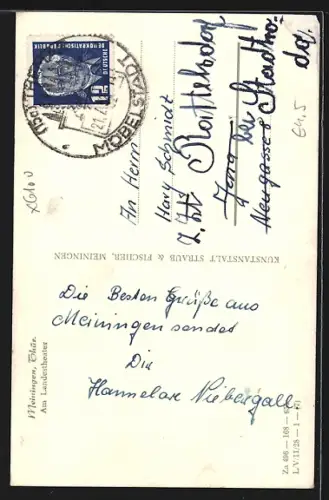 DEUTSCHE
DEMOKRATISCHE REPUBLIK
MÖBELSTADT
21.
An Herrn
Harry Schmidt
z. Zt. Rottelsdorf
Jena bei Stadtro-
da,
Neugasse 8
KUNSTANSTALT STRAUB & FISCHER, MEININGEN
Die Besten Grüße aus
Meiningen sendet
Dir
Hannelore Niebergall.
Meiningen, Thür.
Am Landestheater